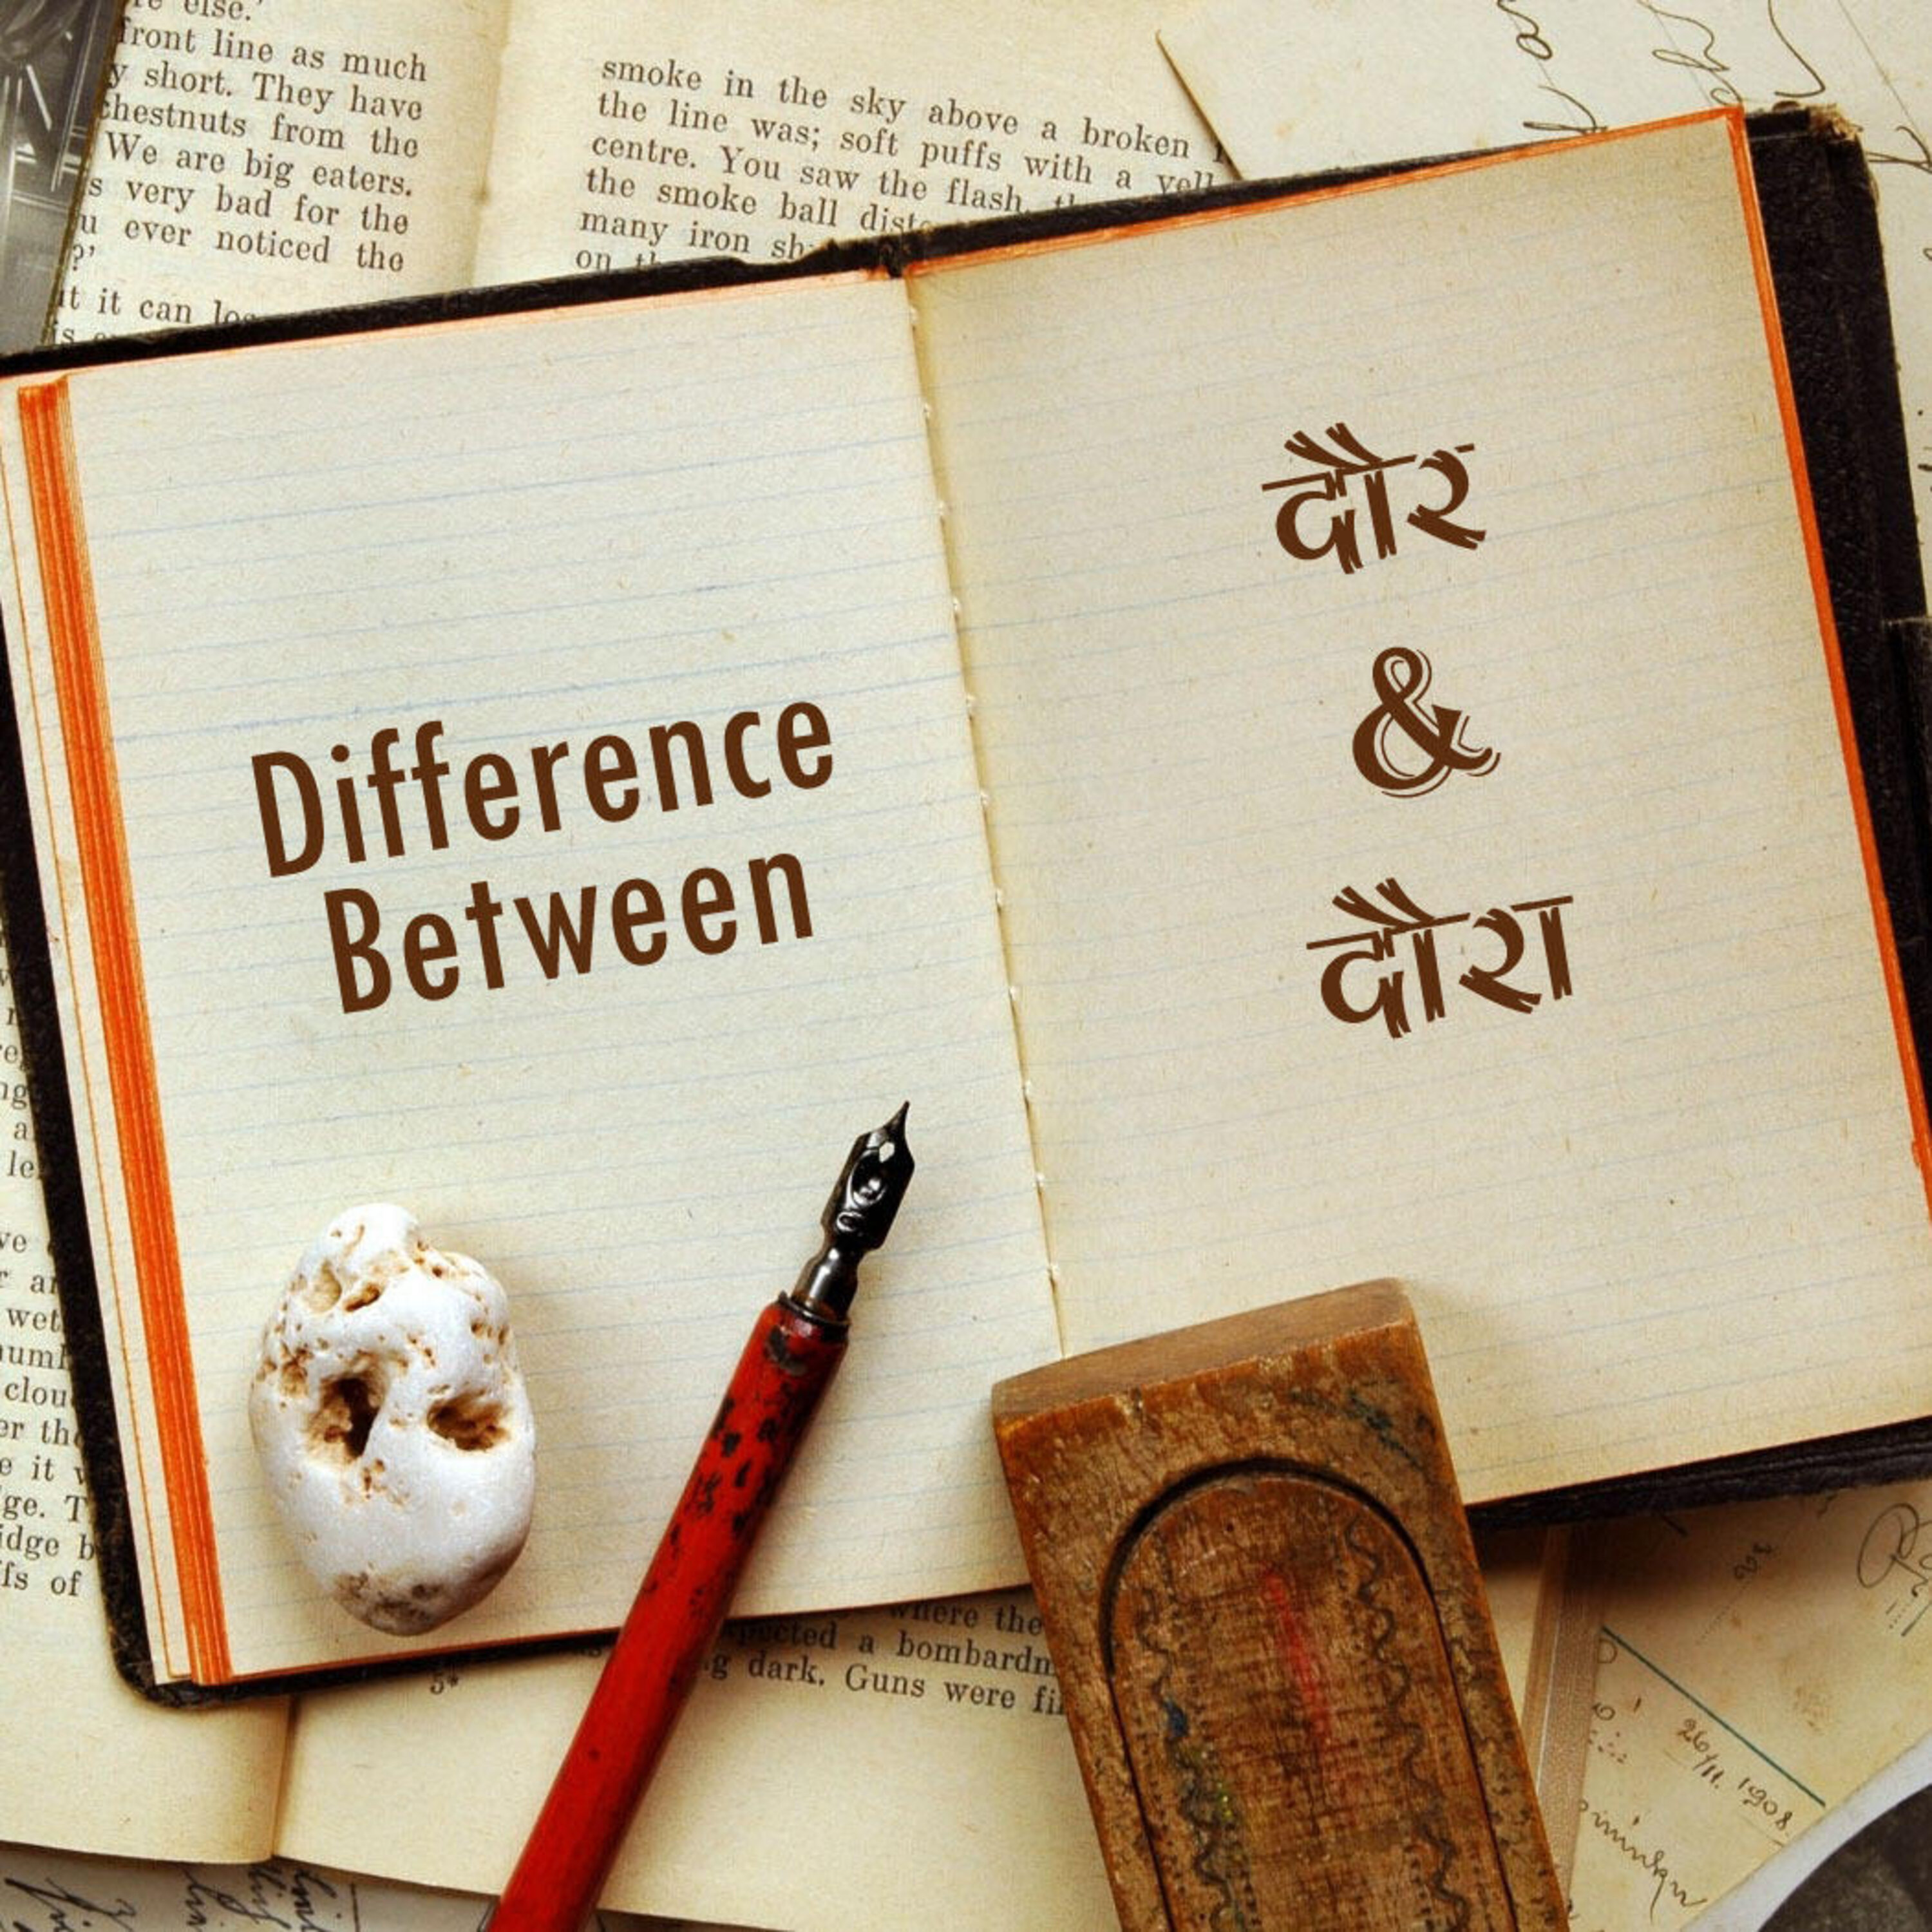 re else.'
front line as much
y short. They have
chestnuts from the
We are big eaters.
s very bad for the
u ever noticed the
?'
it it can
smoke in the sky above a broken
the line was; soft puffs with a
centre. You saw the flash,
the smoke ball
many iron
on
Difference
Between
दौर
&
दौरा
a
le
ve
r
wet
clou
er
e it
ge. T
idge
fs of
where the
a bombardm
g dark. Guns were
5*
26/11. 1908